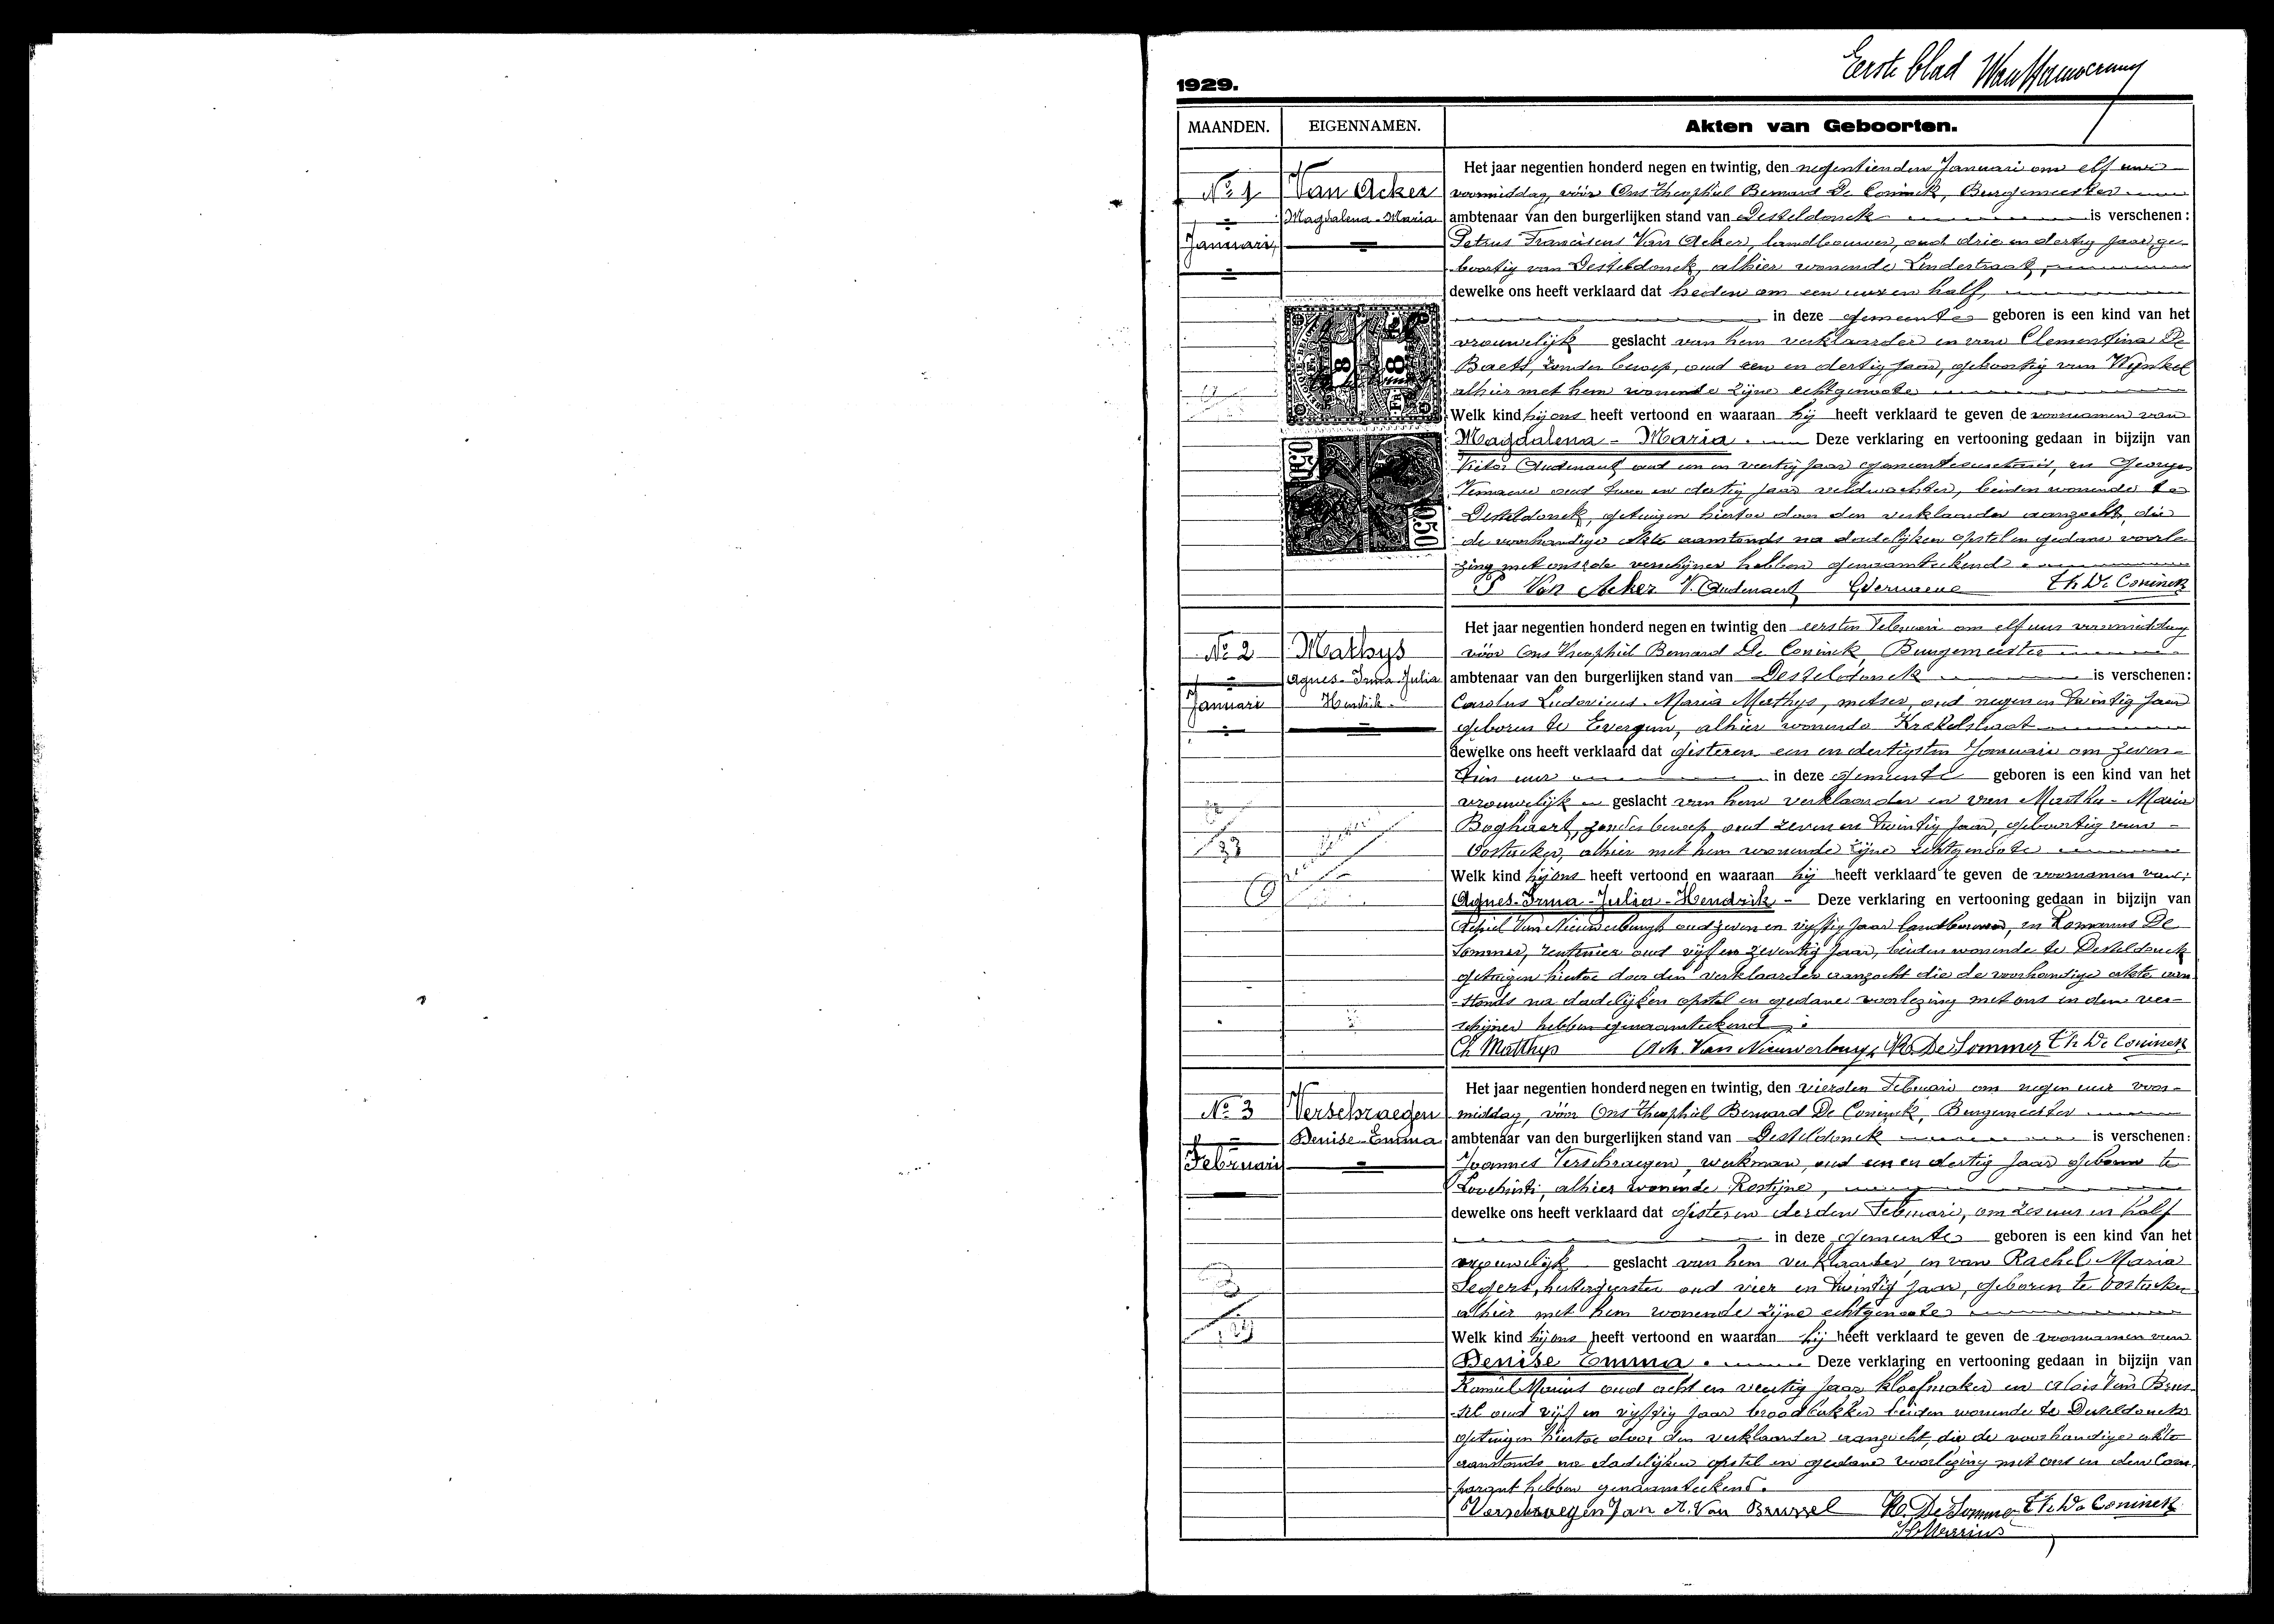 Eerste blad
1929.
MAANDEN. EIGENNAMEN. Akten van Geboorten.
No 1
Januari
Van Acker
Magdalena-Maria
Het jaar negentien honderd negen en twintig, den negentienden Januari om elf ure
voormiddag, vóór Ons Theophiel Bernard De Coninck, Burgemeester
ambtenaar van den burgerlijken stand van Desteldonck is verschenen:
Petrus Franciscus Van Acker, landbouwer, oud drie en dertig jaar ge-
boortig van Desteldonck, alhier wonende Lindestraat,
dewelke ons heeft verklaard dat heden om een ure en half,
in deze gemeente geboren is een kind van het
vrouwelijk geslacht van hem verklaarder en van Clementina De
Baets, zonder beroep, oud een en dertig jaar, geboortig van Wynkel
alhier met hem wonende zijne echtgenoote
Welk kind hij ons heeft vertoond en waaraan hij heeft verklaard te geven de voornamen van
Magdalena - Maria. Deze verklaring en vertooning gedaan in bijzijn van
Victor Audenaert oud een en veertig jaar gemeentesecretaris, en Georges
Vernaeve oud twee en dertig jaar veldwachter, beiden wonende te
Desteldonck, getuigen hiertoe door den verklaarder aanzocht, die
de voorhandige akte aanstonds na dadelijken opstel en gedane voorle-
zing met ons de verschijner hebben genaamteekend.
P Van Acker V. Audenaert GVernaeve Th De Coninck
8
8
FR
050
050
No 2
Januari
Mathys
Agnes-Irma-Julia
Hendrik.
Het jaar negentien honderd negen en twintig den eersten Februari om elf uur voormiddag
vóór Ons Theophiel Bernard De Coninck, Burgemeester
ambtenaar van den burgerlijken stand van Desteldonck is verschenen:
Carolus Ludovicus Maria Mathys, metser, oud negen en twintig jaar
geboren te Evergem, alhier wonende Krekelstraat
dewelke ons heeft verklaard dat gisteren een en dertigsten Januari om zeven-
tien uur in deze gemeente geboren is een kind van het
vrouwelijk geslacht van hem verklaarder en van Martha-Maria
Boghaert, zonder beroep oud zeven en twintig jaar, geboortig van
Oostacker, alhier met hem wonende zijne echtgenoote
Welk kind hij ons heeft vertoond en waaraan hij heeft verklaard te geven de voornamen van:
Agnes-Irma-Julia-Hendrik - Deze verklaring en vertooning gedaan in bijzijn van
Achiel Van Nieuwerburgh oud zeven en vijftig jaar landbouwer, en Romanus De
Sommer, rentenier oud vijf en zeventig jaar, beiden wonende te Desteldonck
getuigen hiertoe door den verklaarder aanzocht die de voorhandige akte aan-
-stonds na dadelijken opstel en gedane voorlezing met ons en den ver-
schijner hebben genaamteekend.
Ch Matthys Ach. Van Nieuwerburgh R. De Sommer Th De Coninck
No 3
Februari
Verschraegen
Denise-Emma
Het jaar negentien honderd negen en twintig, den vierden Februari om negen uur voor-
middag, vóór Ons Theophiel Bernard De Coninck, Burgemeester
ambtenaar van den burgerlijken stand van Desteldonck is verschenen:
Joannes Verschraegen, werkman, oud een en dertig jaar geboren te
Loochristi, alhier wonende Rostijne,
dewelke ons heeft verklaard dat gisteren derden Februari, om zes uur en half
in deze gemeente geboren is een kind van het
vrouwelijk geslacht van hem verklaarder, en van Rachel Maria
Segers, herbergierster oud vier en twintig jaar, geboren te Oostacker
alhier met hem wonende zijne echtgenoote
Welk kind hij ons heeft vertoond en waaraan hij heeft verklaard te geven de voornamen van
Denise Emma. Deze verklaring en vertooning gedaan in bijzijn van
Kamiel Marius oud acht en veertig jaar kloefmaker en Alois Van Brus-
sel oud vijf en vijftig jaar broodbakker beiden wonende te Desteldonck
getuigen hiertoe door den verklaarder aanzocht, die de voorhandige akte
aanstonds na dadelijken opstel en gedane voorlezing met ons en den Com-
parant hebben genaamteekend.
Verschraegen Jan A. Van Brussel R. De Sommer Th De Coninck